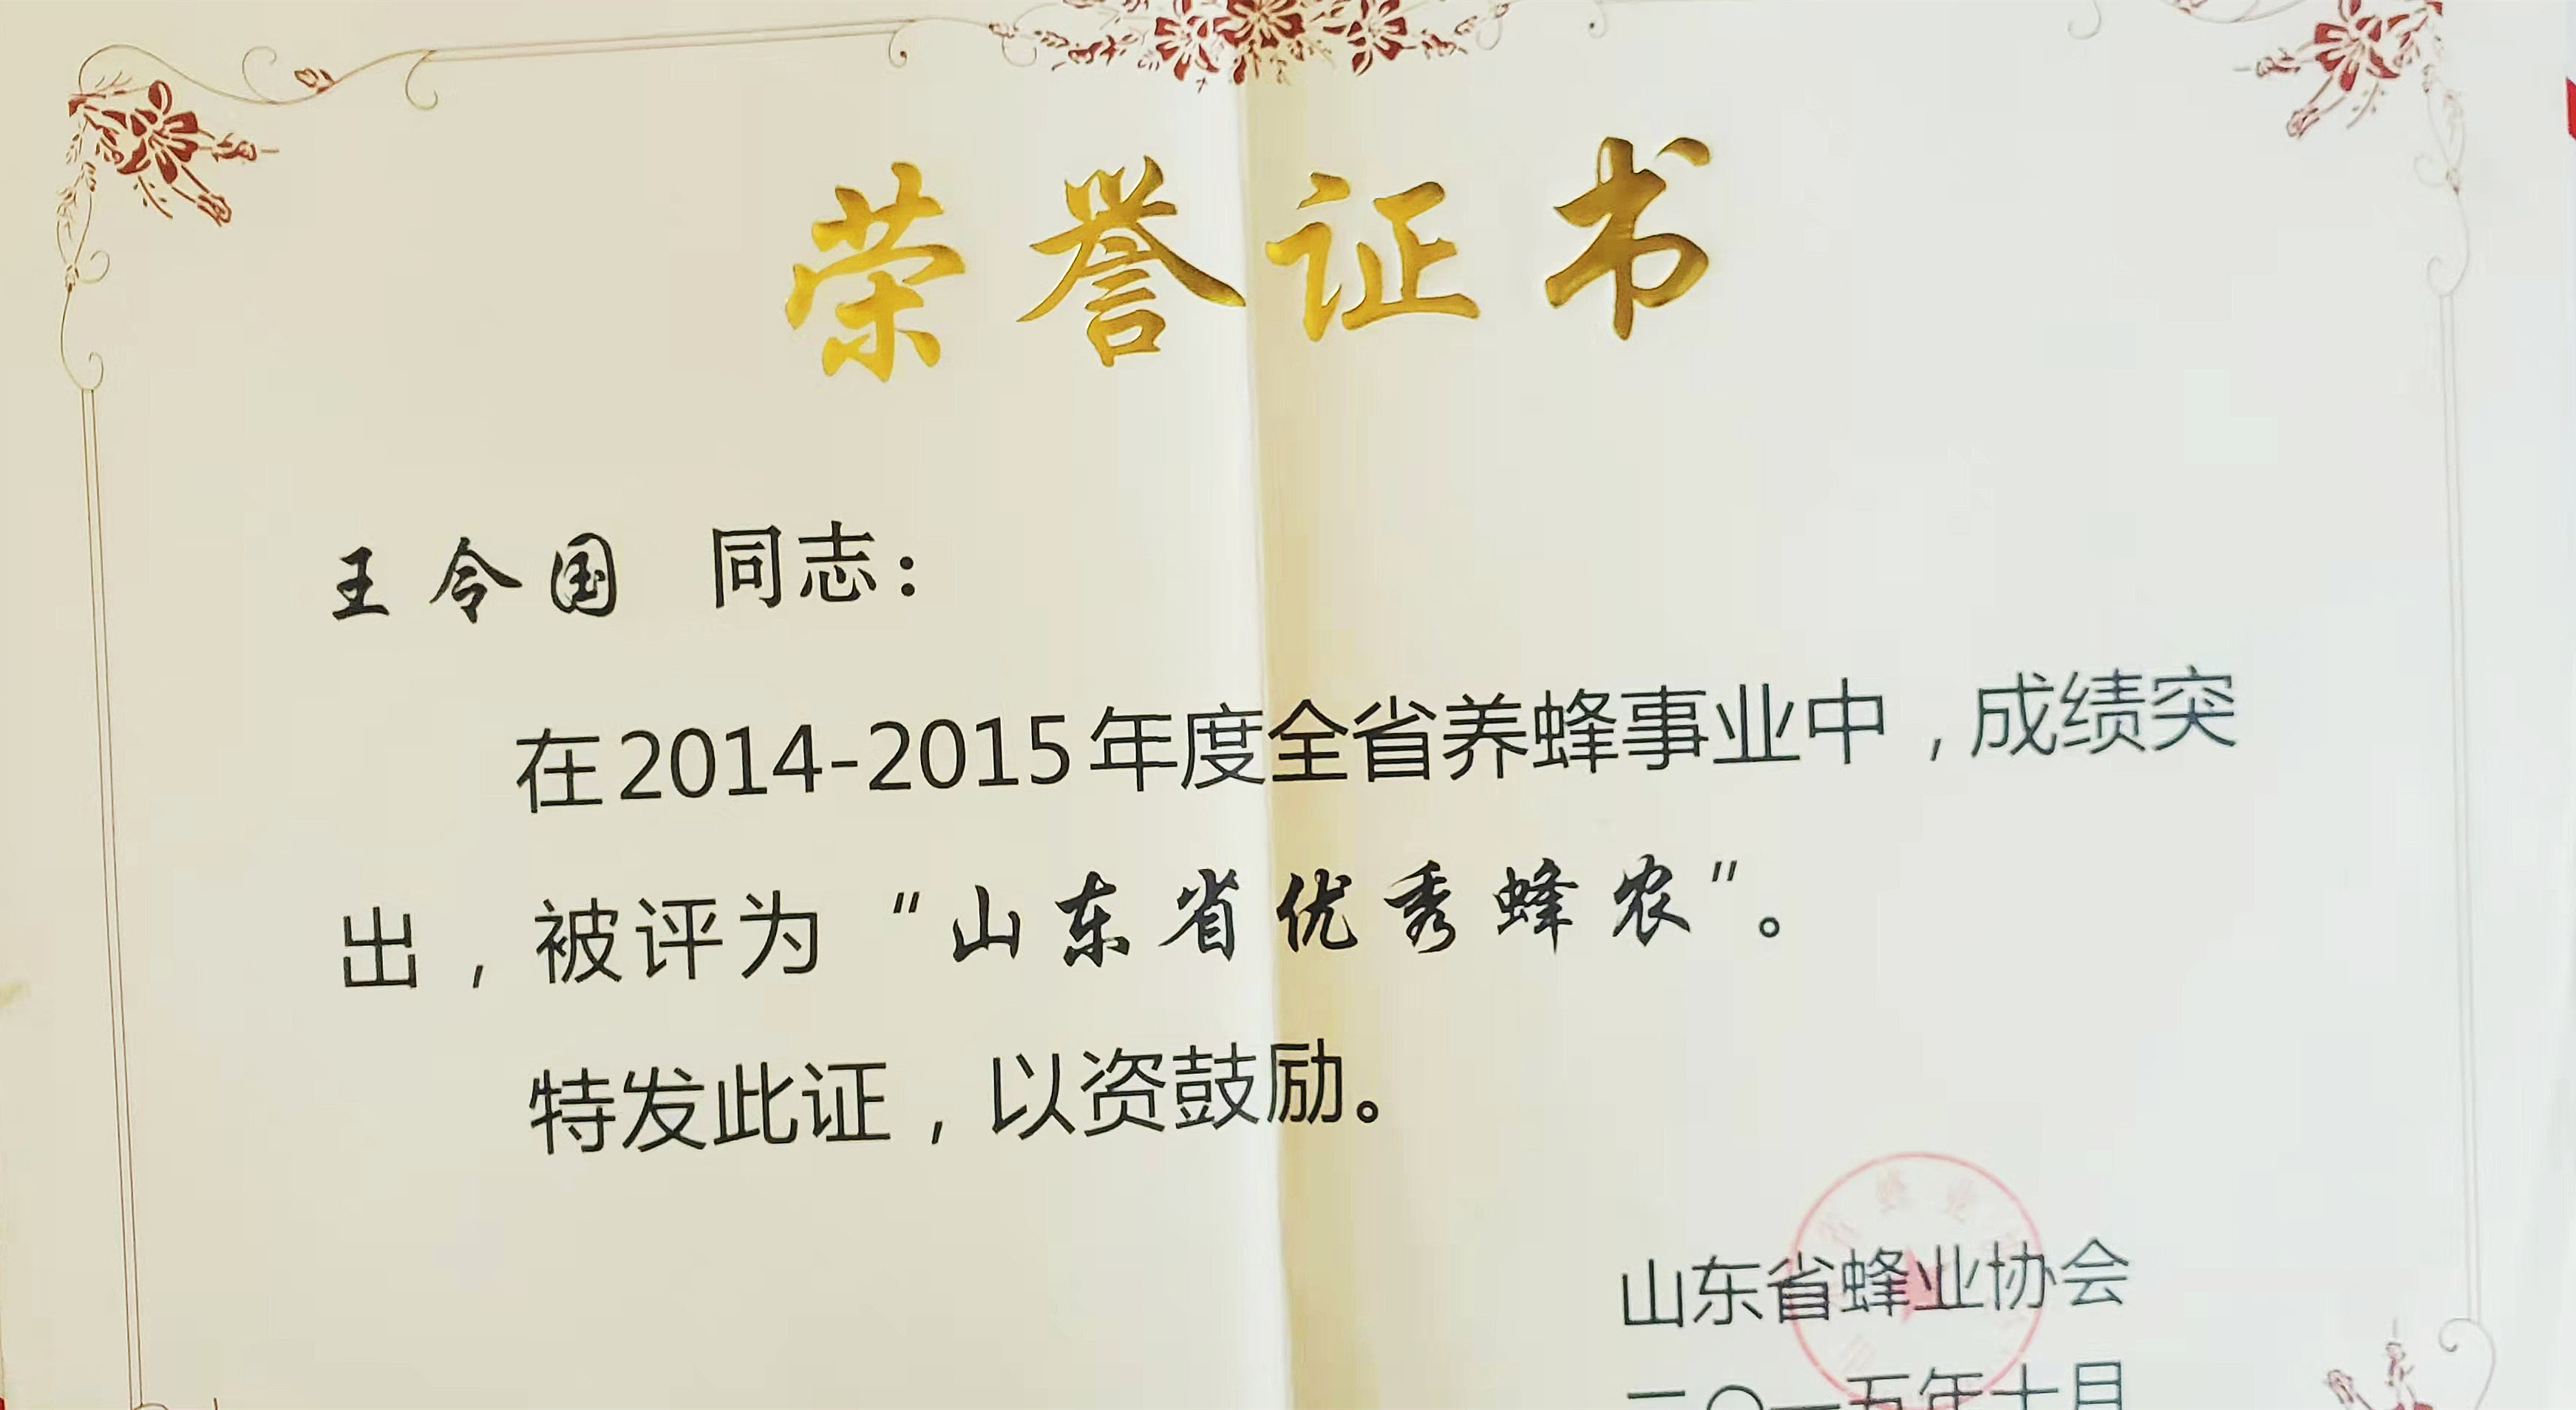 荣誉证书
王令国 同志：
在2014-2015年度全省养蜂事业中，成绩突
出，被评为“山东省优秀蜂农”。
特发此证，以资鼓励。
山东省蜂业协会
二〇一五年十月